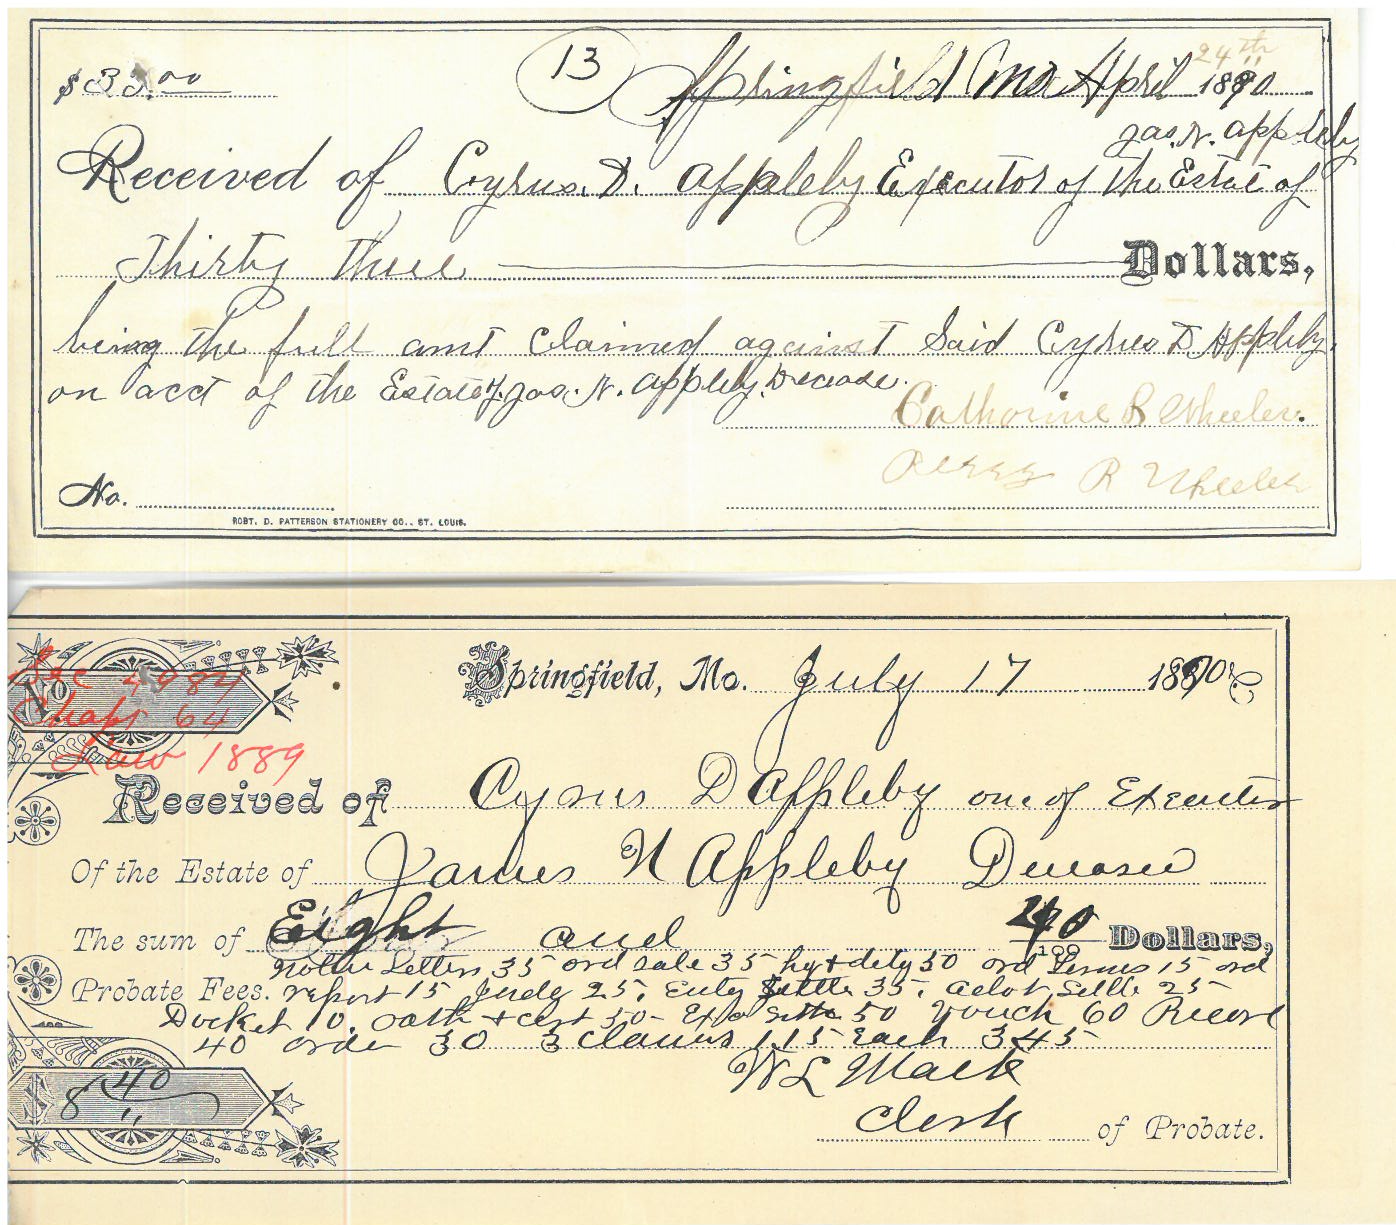 $33.00
13
Springfield Mo April 24th 1890
Jas. N. Appleby
Received of Cyrus. D. Appleby Executor of the Estate of
Thirty three Dollars,
being the full amt Claimed against Said Cyrus D Appleby.
on acct of the Estate of Jas. N. Appleby, Decease.
Catherine R Wheeler.
Perry R Wheeler
No.
ROBT. D. PATTERSON STATIONERY CO., ST. LOUIS.
Springfield, Mo. July 17 1890
No.
Sec
Chapt 64
Law 1889
Received of Cyrus D Appleby one of Executor
Of the Estate of James N Appleby Decease
The sum of Eight and 40/100 Dollars,
Notice Letters 35 ord sale 35 50 ord 15 ord
Probate Fees. report 15 Judg 25, Entg Settle 35, Settle 25
Docket 10. oath + cert 50 Settle 50 Vouch 60 Record
40 order 30 3 Claims 1.15 Each 345
W L Mack
$8 40
Clerk of Probate.